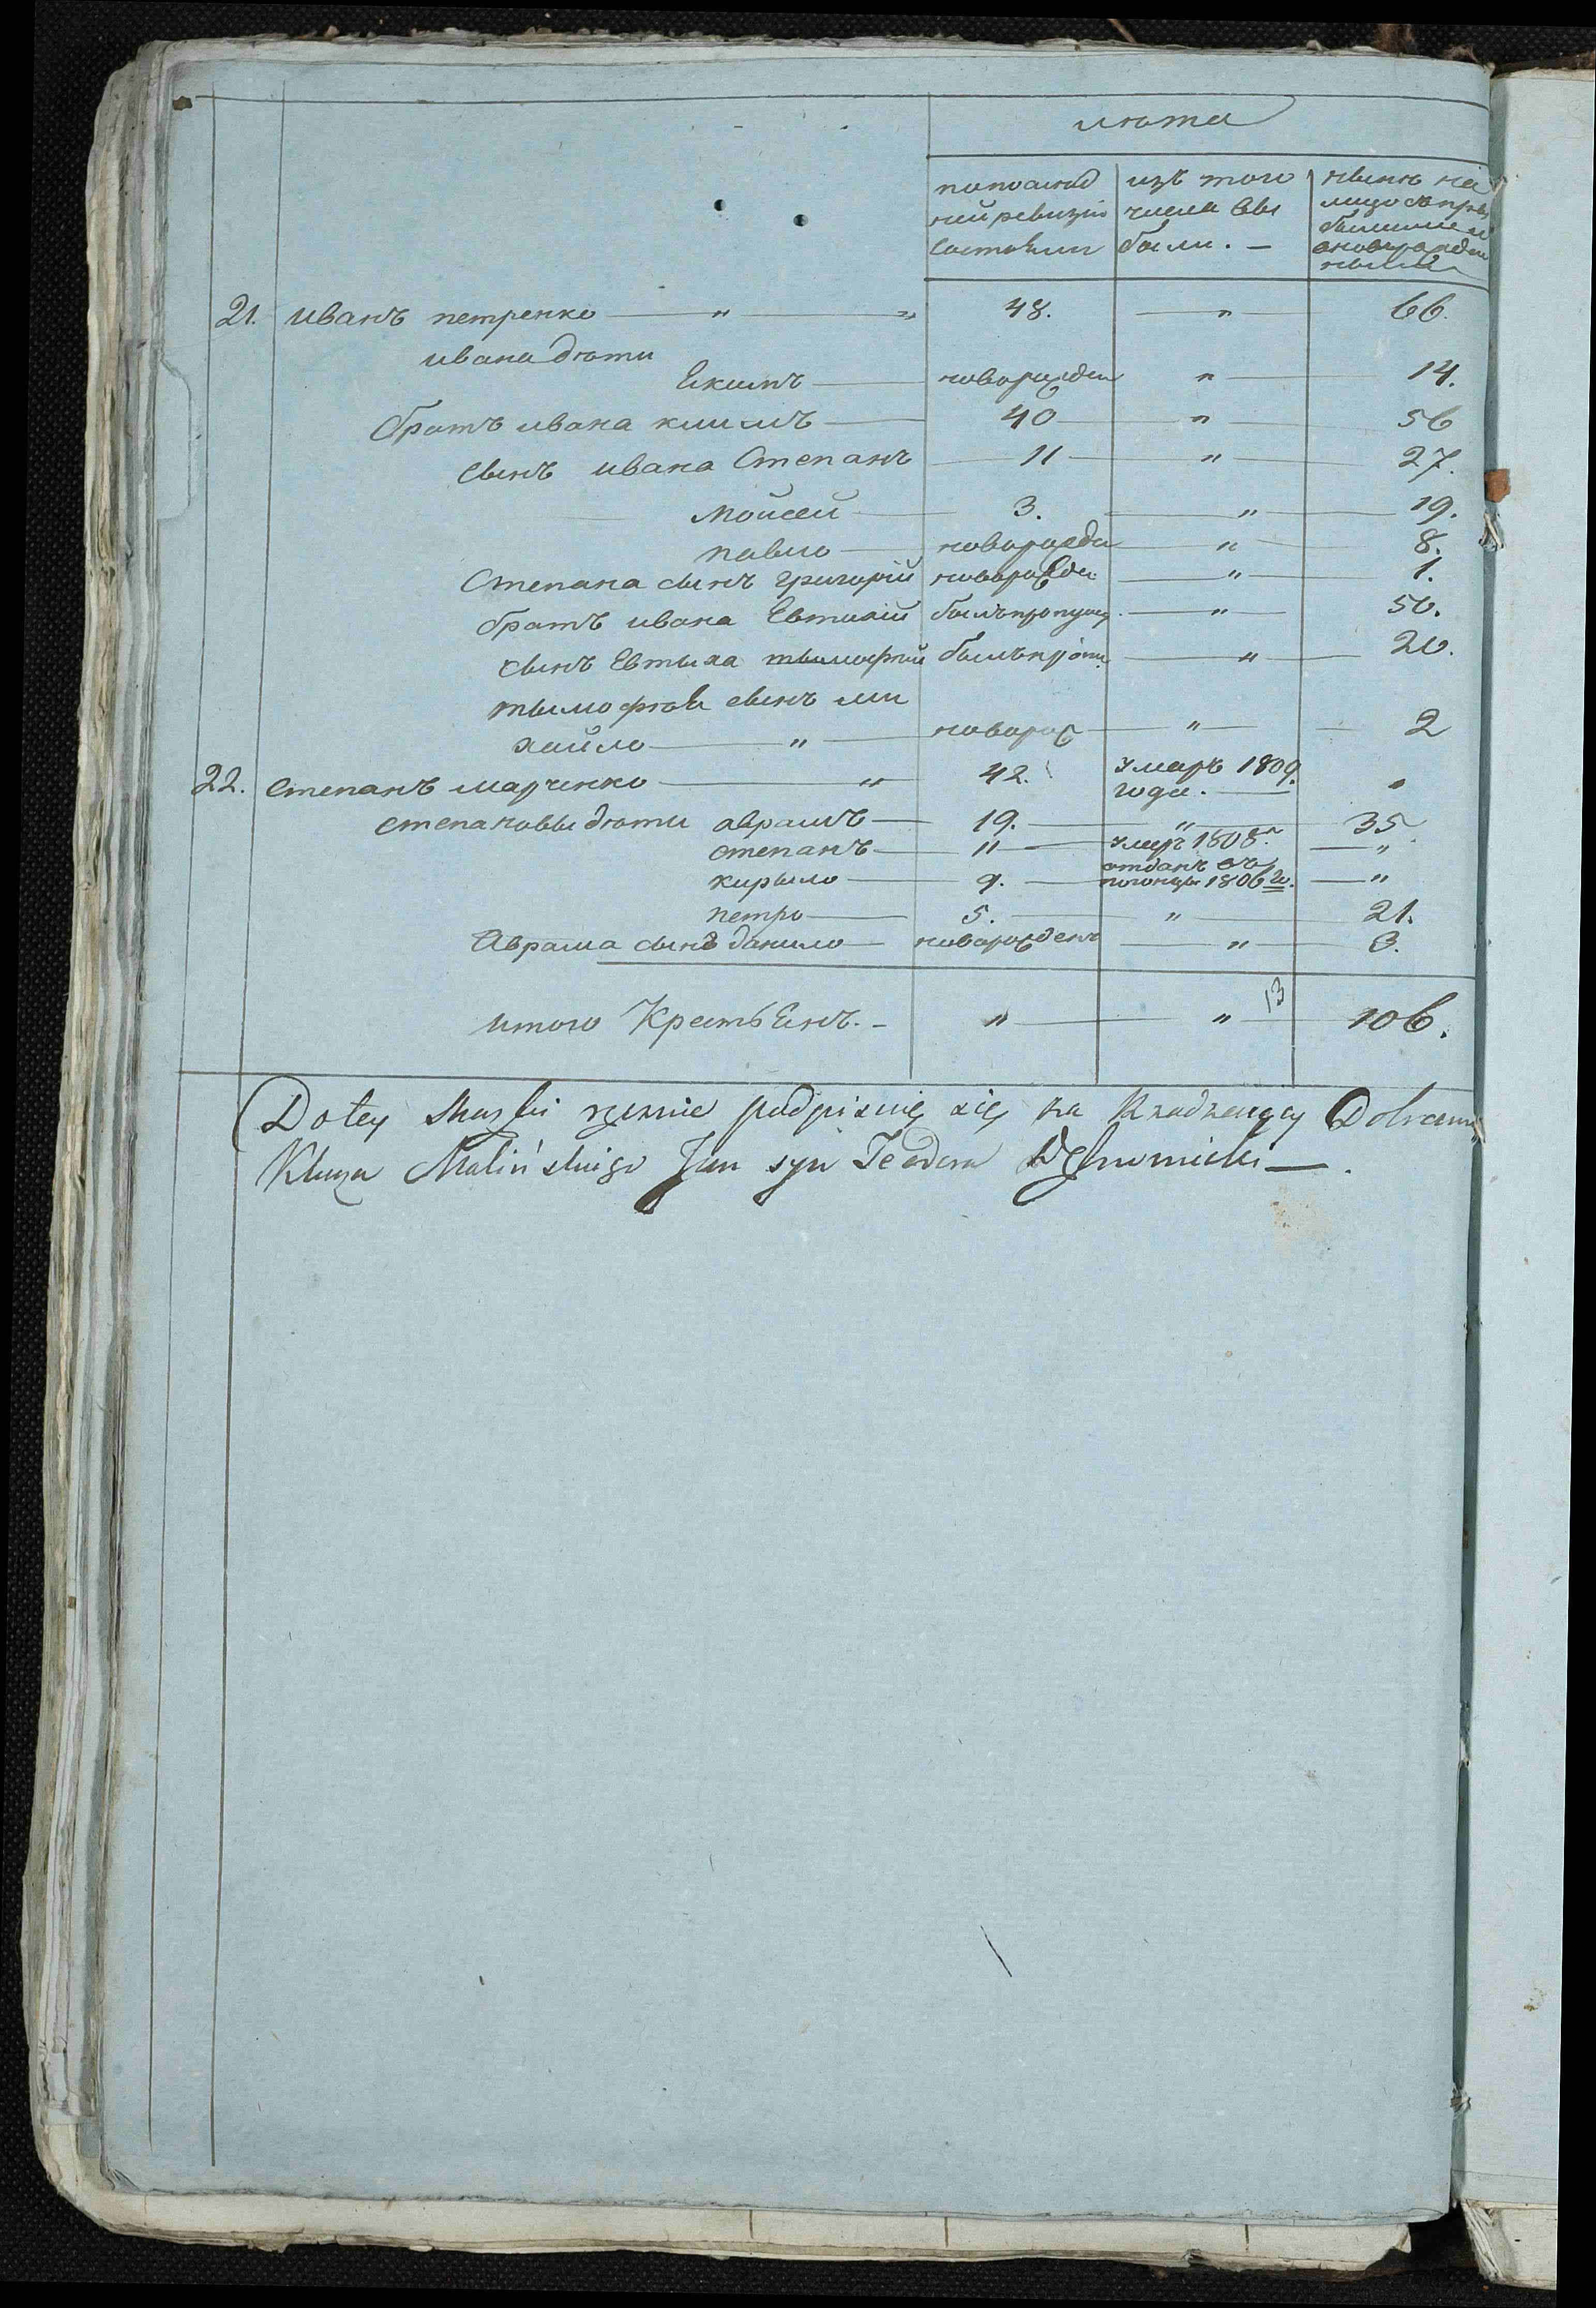 люта
попослид изъ того нынѣ на
ней ревизіи числа вы лицо съ при
состояли были. — былыми и
новорожден
ными
21. иванъ петренко — " — " 48. — " — 66.
ивана дѣти
Екимъ — новорожден " — 14.
братъ ивана климъ — 40 — " — 56
сынъ ивана Степанъ — 11 — " — 27.
Мойсей — 3. — " — 19.
павло — новорожде — " — 8.
Степана сынъ григорій новорожде — " — 1.
братъ ивана Евтихій былъ пропущ — " — 50.
сынъ Евтыха тымофій былъ проп. — " — 20.
тымофѣя сынъ ми
хайло — " — новорож — " — 2
22. Степанъ марченко — " 42. умаръ 1809.
года. — "
степановы дѣти аврамъ — 19. — " — 35.
степанъ — 11 — умеръ 1808. — "
кирыло — 9. — отданъ въ
погонцы 1806 го. — "
петро — 5. — " — 21.
Аврама сынъ данило — новорожденъ — " — 3.
13
итого Крестьянъ. — " — " — 106.
Do tey Skazki ręcznie podpisuię się na Rządzęncy Dobrami
Klucza Malińskiego Jan syn Teodora